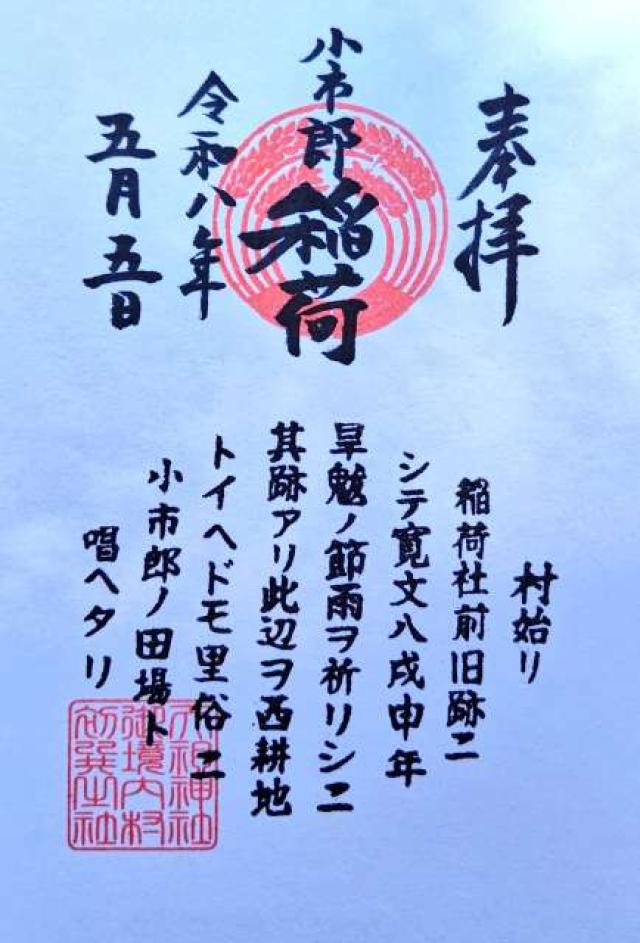 奉拝
小市郎稲荷
令和八年
五月五日
村始リ
稲荷社前旧跡ニ
シテ寛文八戌申年
旱魃ノ節雨ヲ祈リシニ
其跡アリ此辺ヲ西耕地
トイヘドモ里俗ニ
小市郎ノ田場ト
唱ヘタリ
神社
御境内村
社